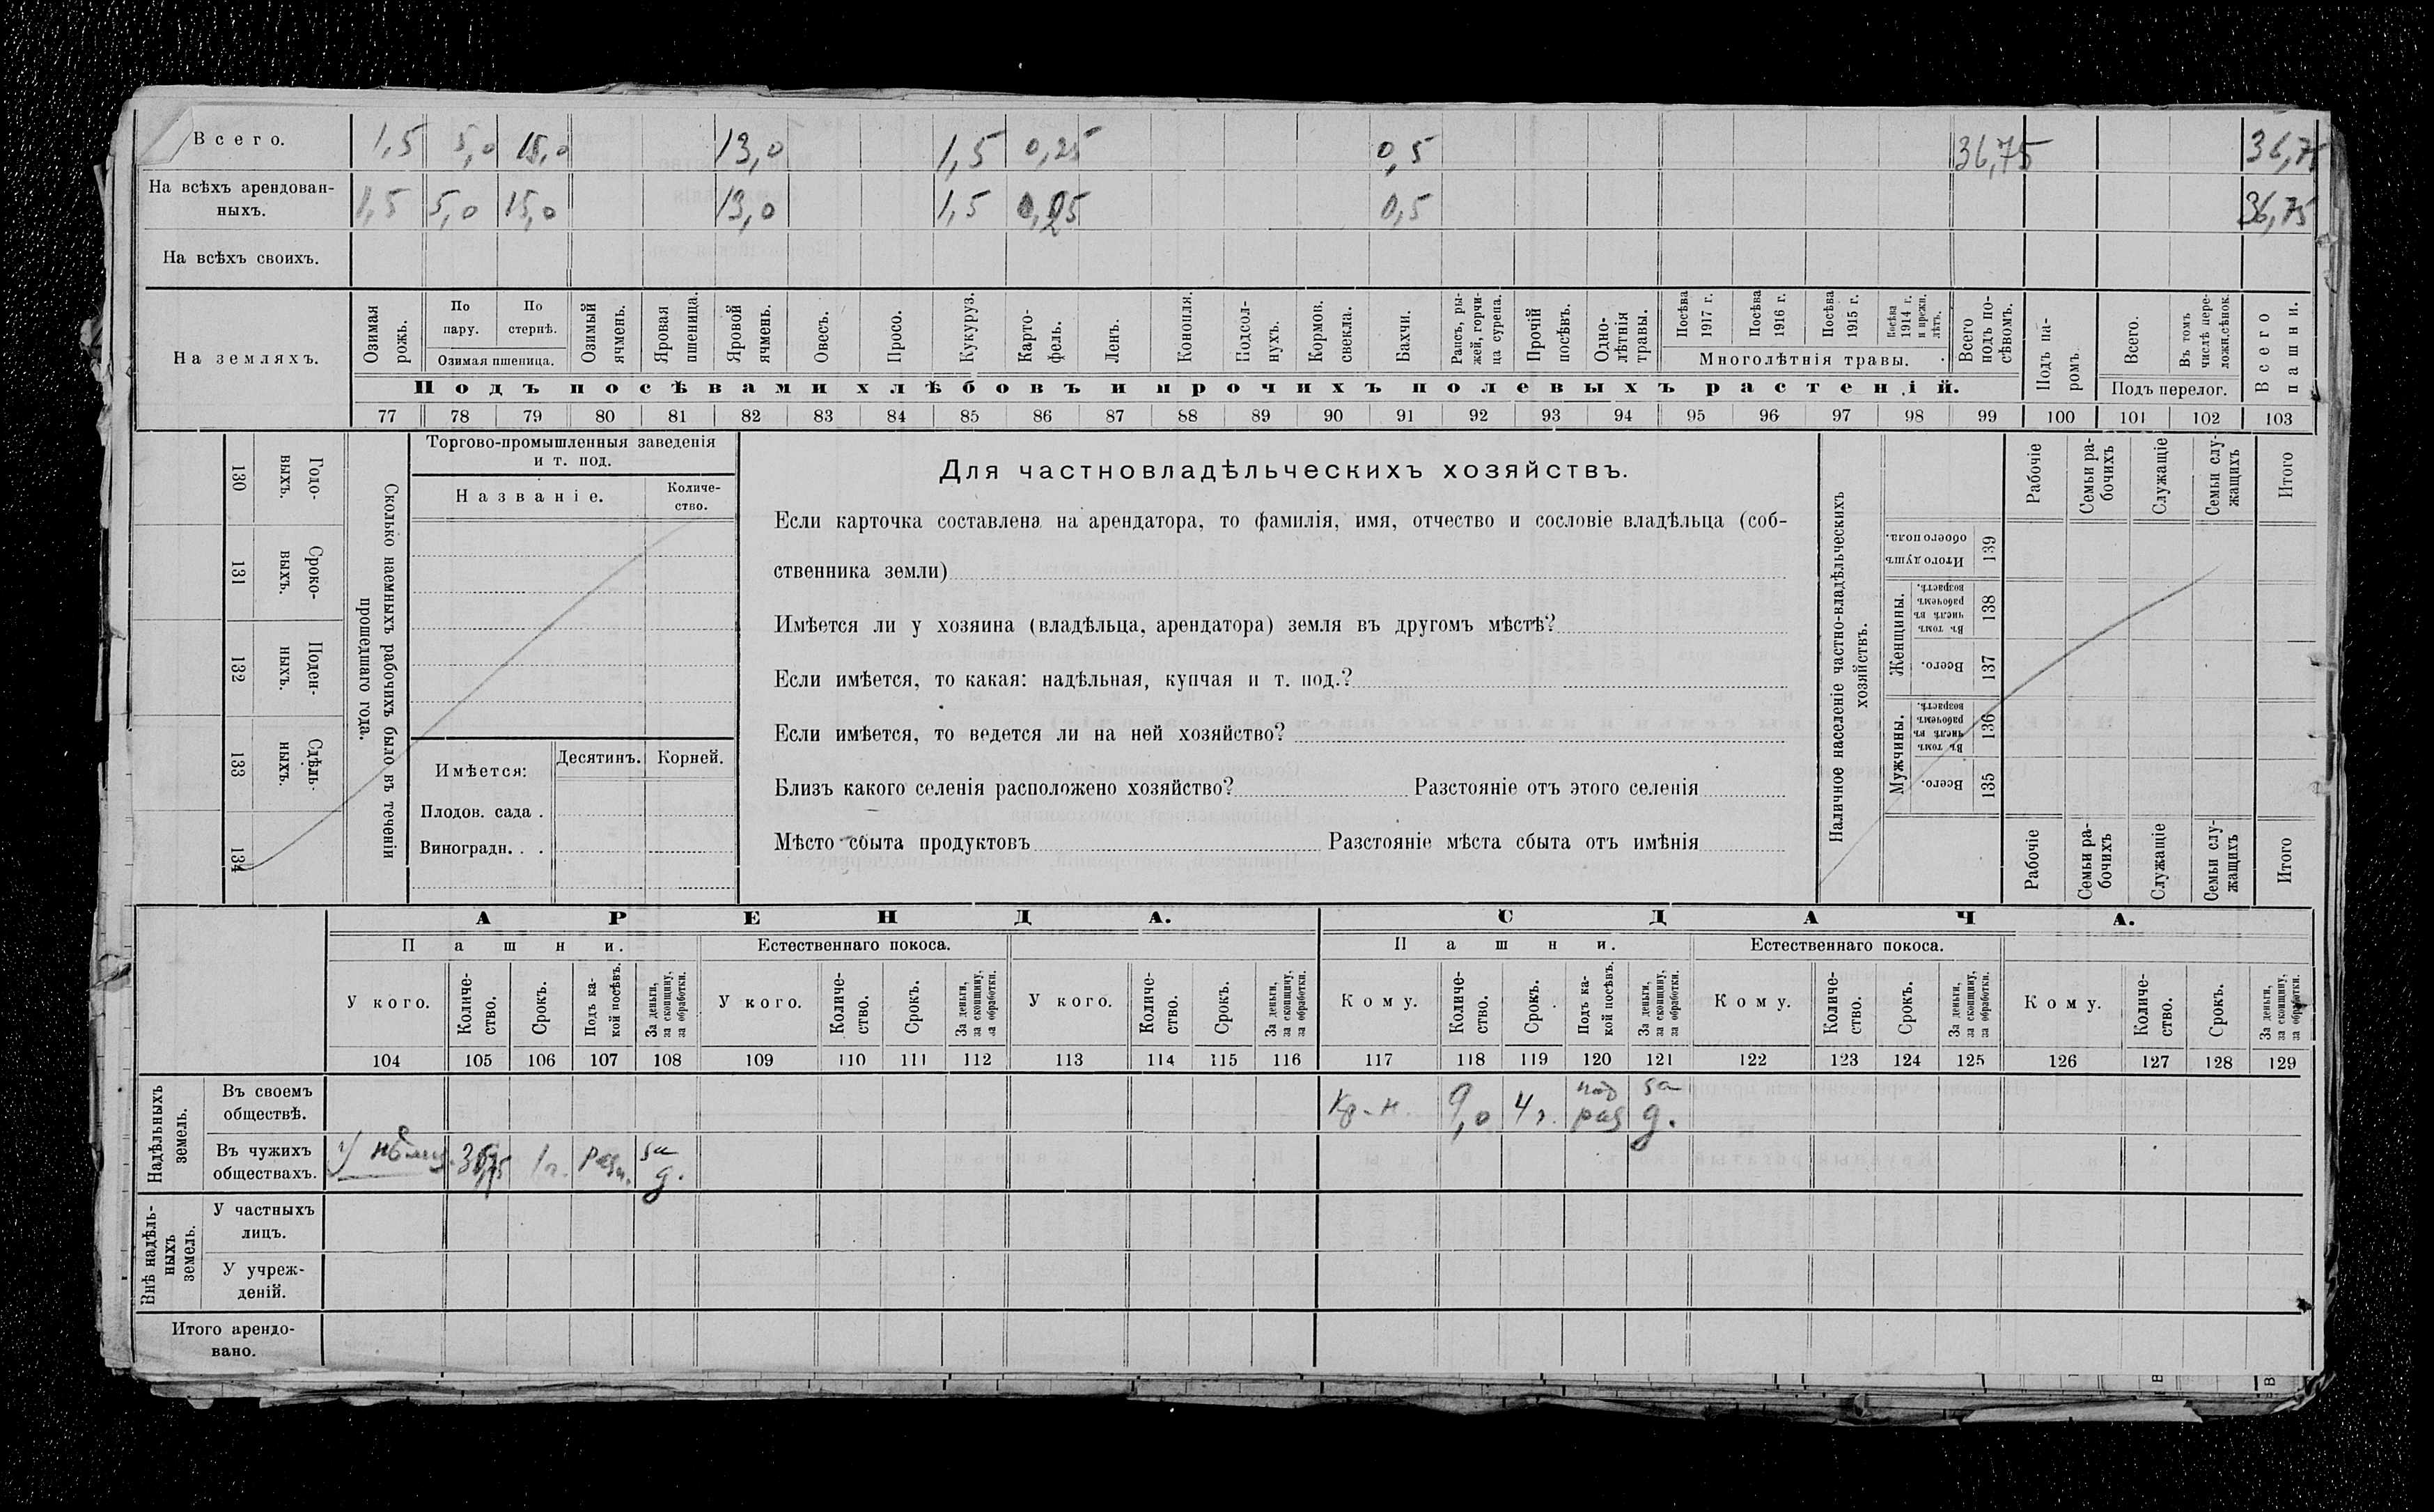 Всего. 1,5 5,0 15,0 13,0 1,5 0,25 0,5 36,75 36,75
На всѣхъ арендован-
ныхъ. 1,5 5,0 15,0 13,0 1,5 0,25 0,5 36,75
На всѣхъ своихъ.
На земляхъ.
Озимая рожь.
По пару.
По стернѣ.
Озимая пшеница.
Озимый ячмень.
Яровая пшеница.
Яровой ячмень.
Овесъ.
Просо.
Кукуруз.
Карто-
фель.
Ленъ.
Конопля.
Подсол-
нухъ.
Кормов.
свекла.
Бахчи.
Рапсъ, ры-
жей, горчи-
ца сурепа.
Прочій
посѣвъ.
Одно-
лѣтнія
травы.
Посѣва
1917 г.
Посѣва
1916 г.
Посѣва
1915 г.
Посѣва
1914 г.
и прежн.
лѣтъ.
Многолѣтнія травы.
Всего
подъ по-
сѣвомъ.
Подъ па-
ромъ.
Всего.
Въ томъ
числѣ пере-
ложн.сѣнок.
Подъ перелог.
Всего
пашни.
Подъ посѣвами хлѣбовъ и прочихъ полевыхъ растеній.
77 78 79 80 81 82 83 84 85 86 87 88 89 90 91 92 93 94 95 96 97 98 99 100 101 102 103
130 131 132 133 134
Годо-
выхъ.
Сроко-
выхъ.
Поден-
ныхъ.
Сдѣль-
ныхъ.
Сколько наемныхъ рабочихъ было въ теченіи
прошедшаго года.
Торгово-промышленныя заведенія
и т. под.
Названіе.
Количе-
ство.
Имѣется: Десятинъ. Корней.
Плодов. сада .
Виноградн. . .
Для частновладѣльческихъ хозяйствъ.
Если карточка составлена на арендатора, то фамилія, имя, отчество и сословіе владѣльца (соб-
ственника земли)
Имѣется ли у хозяина (владѣльца, арендатора) земля въ другомъ мѣстѣ?
Если имѣется, то какая: надѣльная, купчая и т. под.?
Если имѣется, то ведется ли на ней хозяйство?
Близъ какого селенія расположено хозяйство? Разстояніе отъ этого селенія
Мѣсто сбыта продуктовъ Разстояніе мѣста сбыта отъ имѣнія
Наличное населеніе частно-владѣльческихъ
хозяйствъ.
Рабочіе
Семьи ра-
бочихъ
Служащіе
Семьи слу-
жащихъ
Итого
Итого душъ
обоего пола.
139
Женщины.
Въ томъ
числѣ въ
рабочемъ
возрастѣ.
138
Всего.
137
Мужчины.
Въ томъ
числѣ въ
рабочемъ
возрастѣ.
136
Всего.
135
Рабочіе
Семьи ра-
бочихъ
Служащіе
Семьи слу-
жащихъ
Итого
АРЕНДА. СДАЧА.
Пашни. Естественнаго покоса. Пашни. Естественнаго покоса.
У кого.
Количе-
ство.
Срокъ.
Подъ ка-
кой посѣвъ.
За деньги,
за скопщину,
за обработки.
У кого.
Количе-
ство.
Срокъ.
За деньги,
за скопщину,
за обработки.
У кого.
Количе-
ство.
Срокъ.
За деньги,
за скопщину,
за обработки.
Кому.
Количе-
ство.
Срокъ.
Подъ ка-
кой посѣвъ.
За деньги,
за скопщину,
за обработки.
Кому.
Количе-
ство.
Срокъ.
За деньги,
за скопщину,
за обработки.
Кому.
Количе-
ство.
Срокъ.
За деньги,
за скопщину,
за обработки.
104 105 106 107 108 109 110 111 112 113 114 115 116 117 118 119 120 121 122 123 124 125 126 127 128 129
Надѣльныхъ
земель.
Въ своемъ
обществѣ. 9,0 4 г. за д.
Въ чужихъ
обществахъ. 1 г. за д.
Внѣ надѣль-
ныхъ
земель.
У частныхъ
лицъ.
У учреж-
деній.
Итого арендо-
вано.